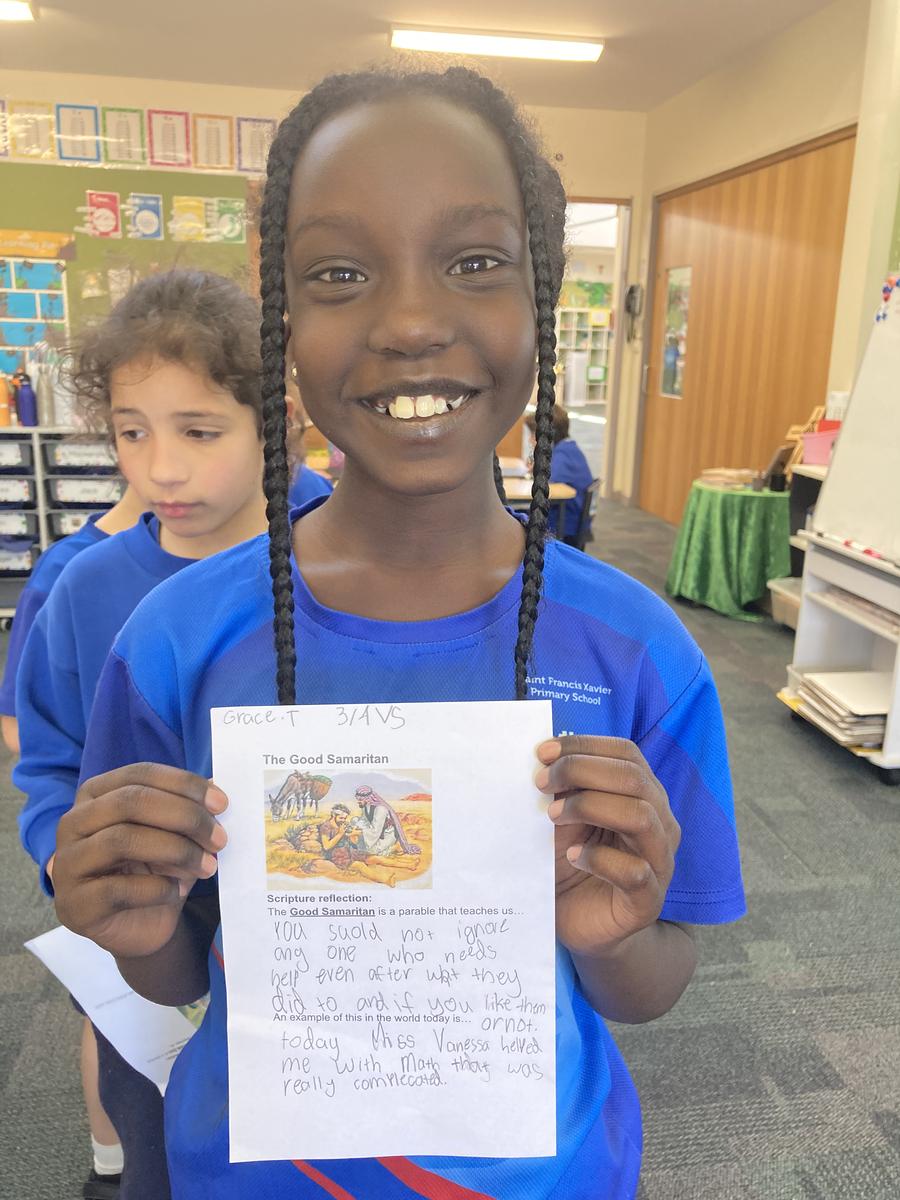 Grace.T 3/4VS
aint Francis Xavier
Primary School
The Good Samaritan
Scripture reflection:
The Good Samaritan is a parable that teaches us...
You suold not ignore
any one who needs
help even after what they
did to and if you like them
or not.
An example of this in the world today is...
today Miss Vanessa helved
me with Math that was
really complecated.